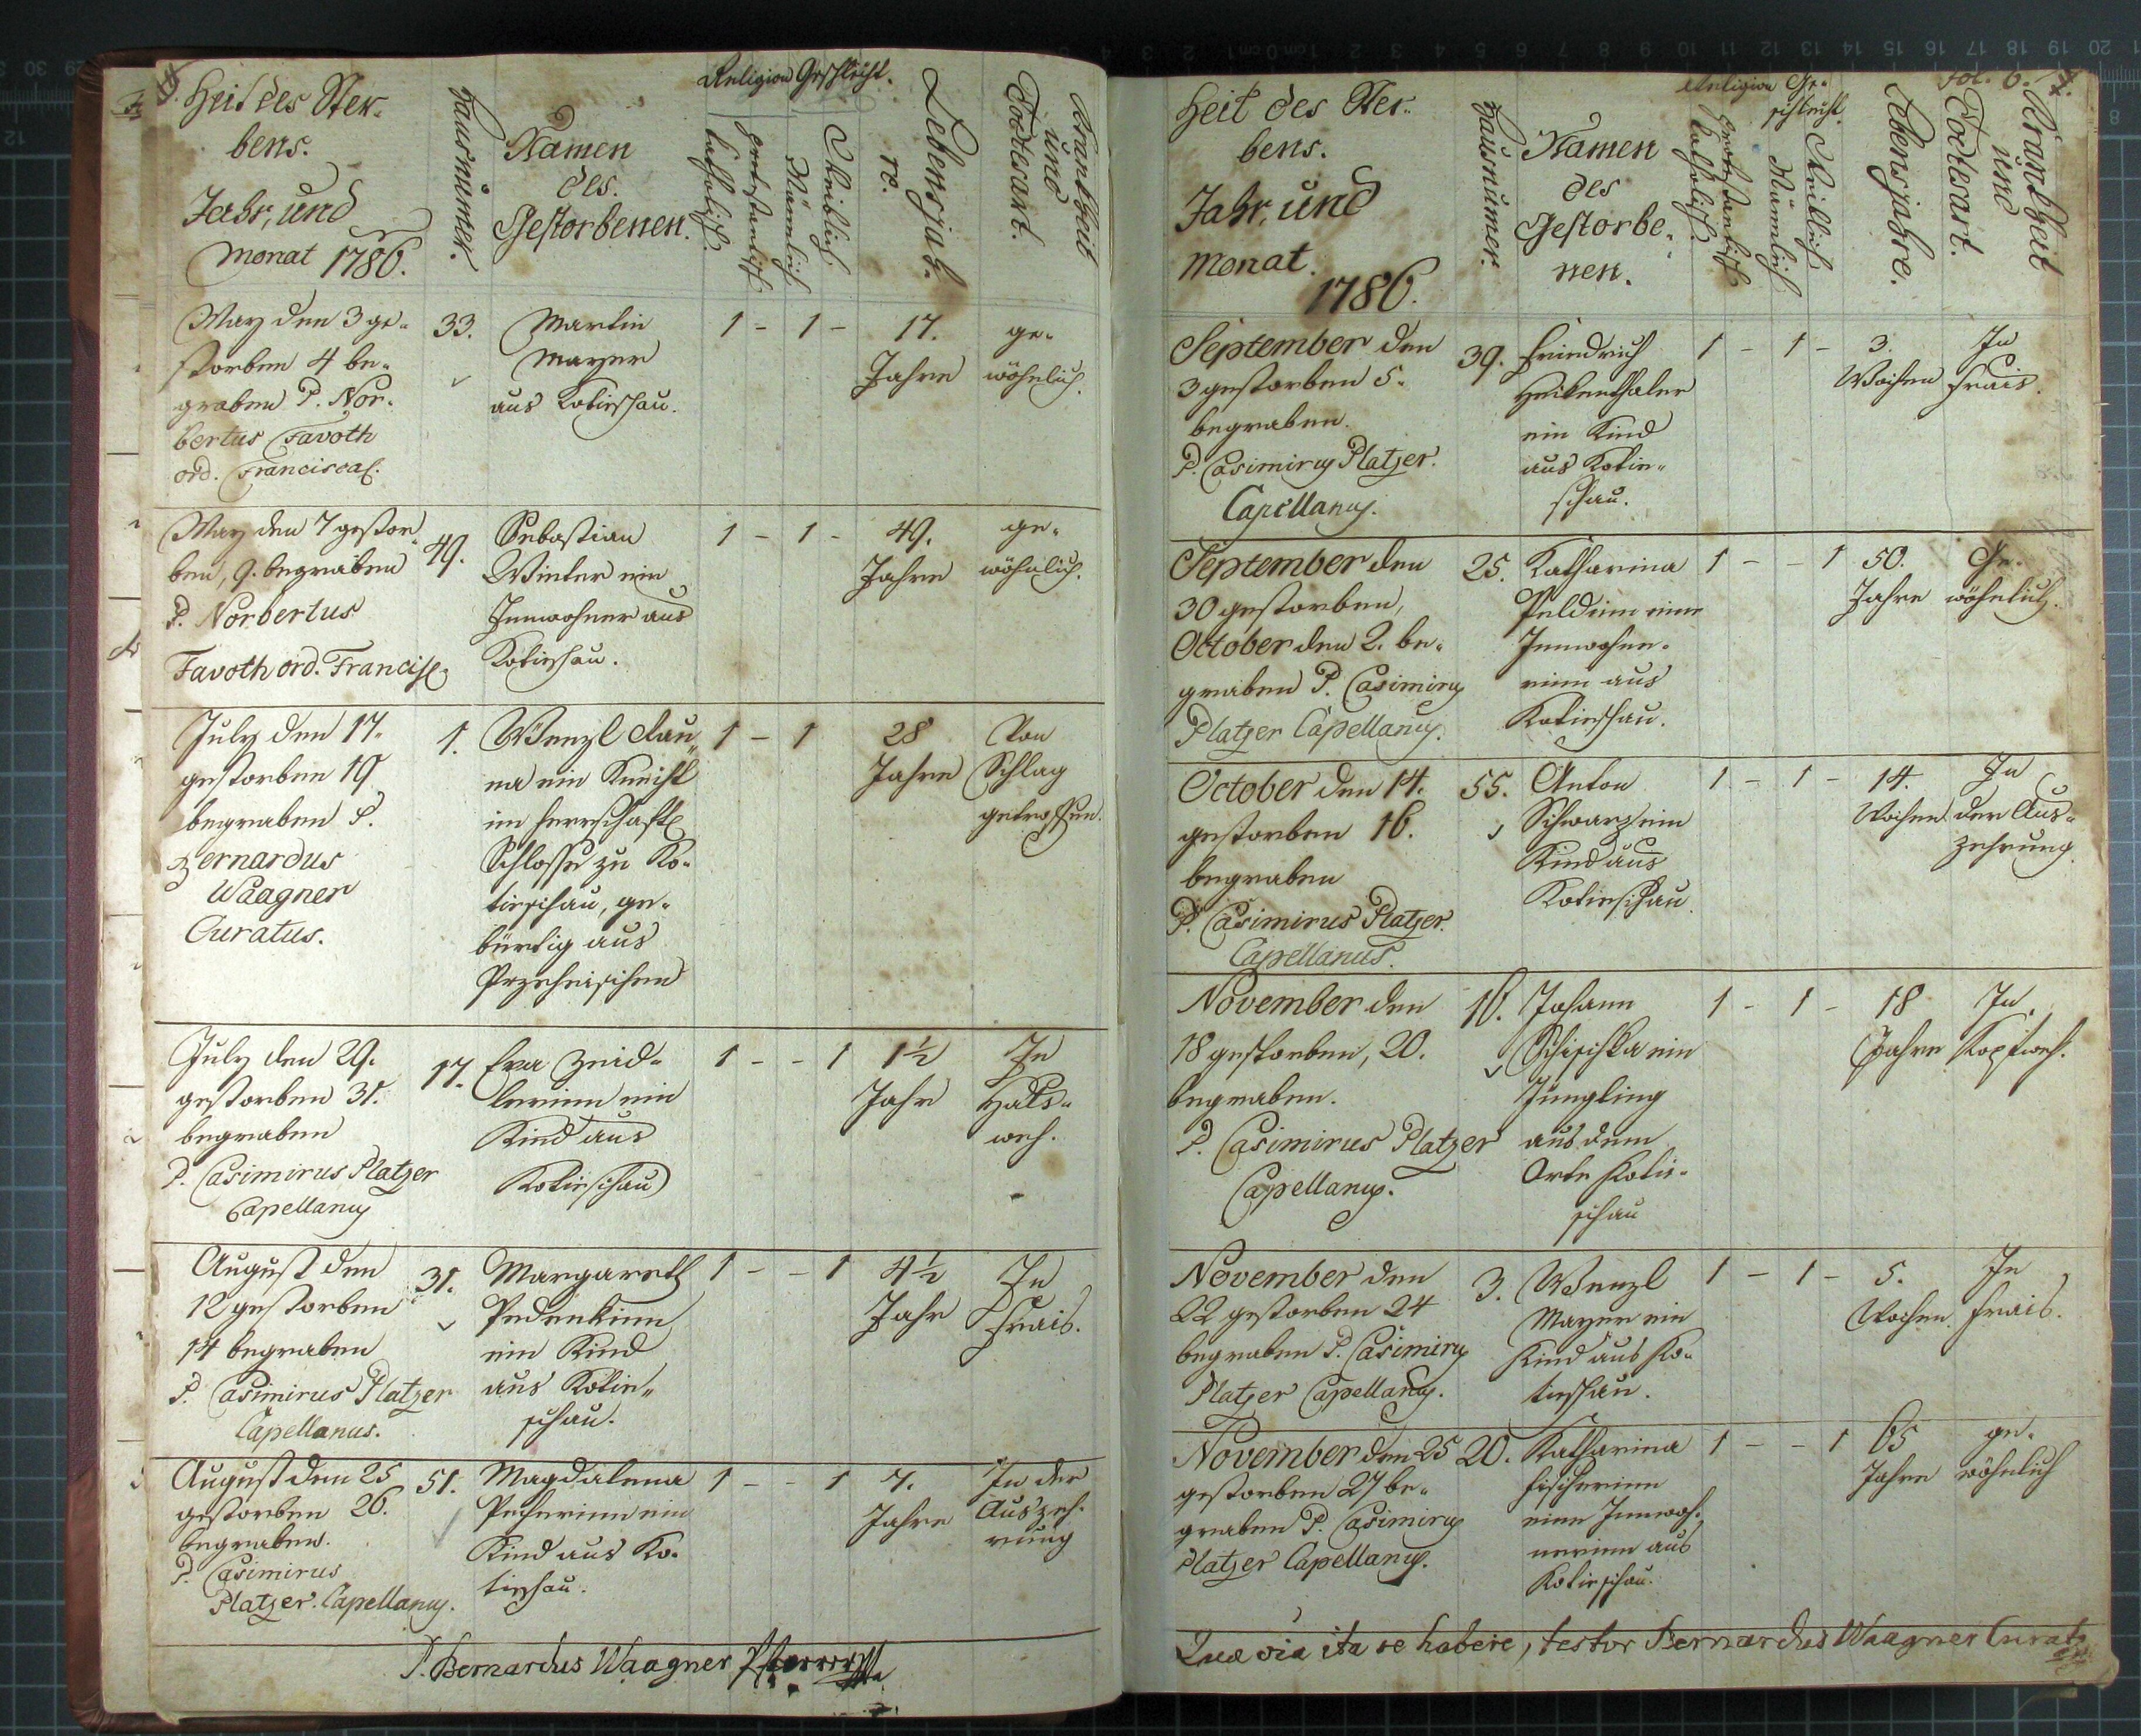 Zeit des Ster-
bens.
Jahr, und
Monat 1786.
Hausnumer.
Namen
des
Gestorbenen.
Religion
Katholisch.
Protestantisch
Geschlecht.
Männlich
Weiblich
Lebensjah-
re.
Krankheit
und
Todesart.
May den 3 ge-
storben 4 be-
graben P. Nor-
bertus Favoth
ord. Franciscal.
33.
Martin
Mayer
aus Kotieschau.
1 - 1 -
17.
Jahre
ge-
wöhnlich.
May den 7 gestor-
ben, 9. begraben
P. Norbertus
Favoth ord. Francisc.
49.
Sebastian
Winter ein
Innwohner aus
Kotieschau.
1 - 1 -
49.
Jahre
ge-
wöhnlich.
July den 17.
gestorben 19
begraben P.
Bernardus
Waagner
Curatus.
1.
Wenzl
na ein Knecht
im herrschaftl
Schlosse zu Ko-
tieschau, ge-
bürtig aus
Przeheischen
1 - 1
28
Jahre
Von
Schlag
getroffen.
July den 29.
gestorben 31.
begraben
P. Casimirus Platzer
Capellanus
17.
Eva Zeid-
lerinn ein
Kind aus
Kotieschau
1 - - 1
1½
Jahr
In
Hals-
weh.
August den
12 gestorben
14 begraben
P. Casimirus Platzer
Capellanus.
31.
Margareth
Pedenkinn
ein Kind
aus Kotie-
schau.
1 - - 1
4½
Jahr
In
Frais.
August den 25
gestorben 26.
begraben.
P. Casimirus
Platzer. Capellanus.
51.
Magdalena
Pecherinn ein
Kind aus Ko-
tieschau.
1 - - 1
7.
Jahre
In der
Auszeh-
rung
P. Bernardus Waagner
fol. 6.
Zeit des Ster-
bens.
Jahr, und
Monat.
1786.
Hausnumer.
Namen
des
Gestorbe-
nen.
Religion
Katholisch.
Protestantisch
Ge-
schlecht.
Männlich
Weiblich
Lebensjahre.
Krankheit
und
Todesart.
September den
3 gestorben 5.
begraben.
P. Casimirus Platzer.
Capellanus.
39.
Friedrich
Heikenthaler
ein Kind
aus Kotie-
schau.
1 - 1 -
3.
Wochen
In
Frais.
September den
30 gestorben,
October den 2. be-
graben P. Casimirus
Platzer Capellanus.
25.
Katharina
eine
Innwohne-
rinn aus
Kotieschau.
1 - - 1
50.
Jahre
Ge-
wöhnlich.
October den 14.
gestorben 16.
begraben
P. Casimirus Platzer.
Capellanus.
55.
Anton
Schwarz ein
Kind aus
Kotieschau.
1 - 1 -
14.
Wochen
In
der Aus-
zehrung
November den
18 gestorben, 20.
begraben.
P. Casimirus Platzer
Capellanus.
16.
Johann
Schischka ein
Jüngling
aus dem
Orte Kotie-
schau
1 - 1 -
18
Jahre
In
Kopfweh.
November den
22 gestorben 24
begraben P. Casimirus
Platzer Capellanus.
3.
Wenzl
Mayer ein
Kind aus Ko-
tieschau.
1 - 1 -
5.
Wochen.
In
Frais.
November den 25
gestorben 27 be-
graben P. Casimirus
Platzer Capellanus.
20.
Katharina
Fischerinn
eine Innwoh-
nerinn aus
Kotieschau.
1 - - 1
65
Jahre
ge-
wöhnlich
Quavia ita se habere, testor Bernardus Waagner Curat